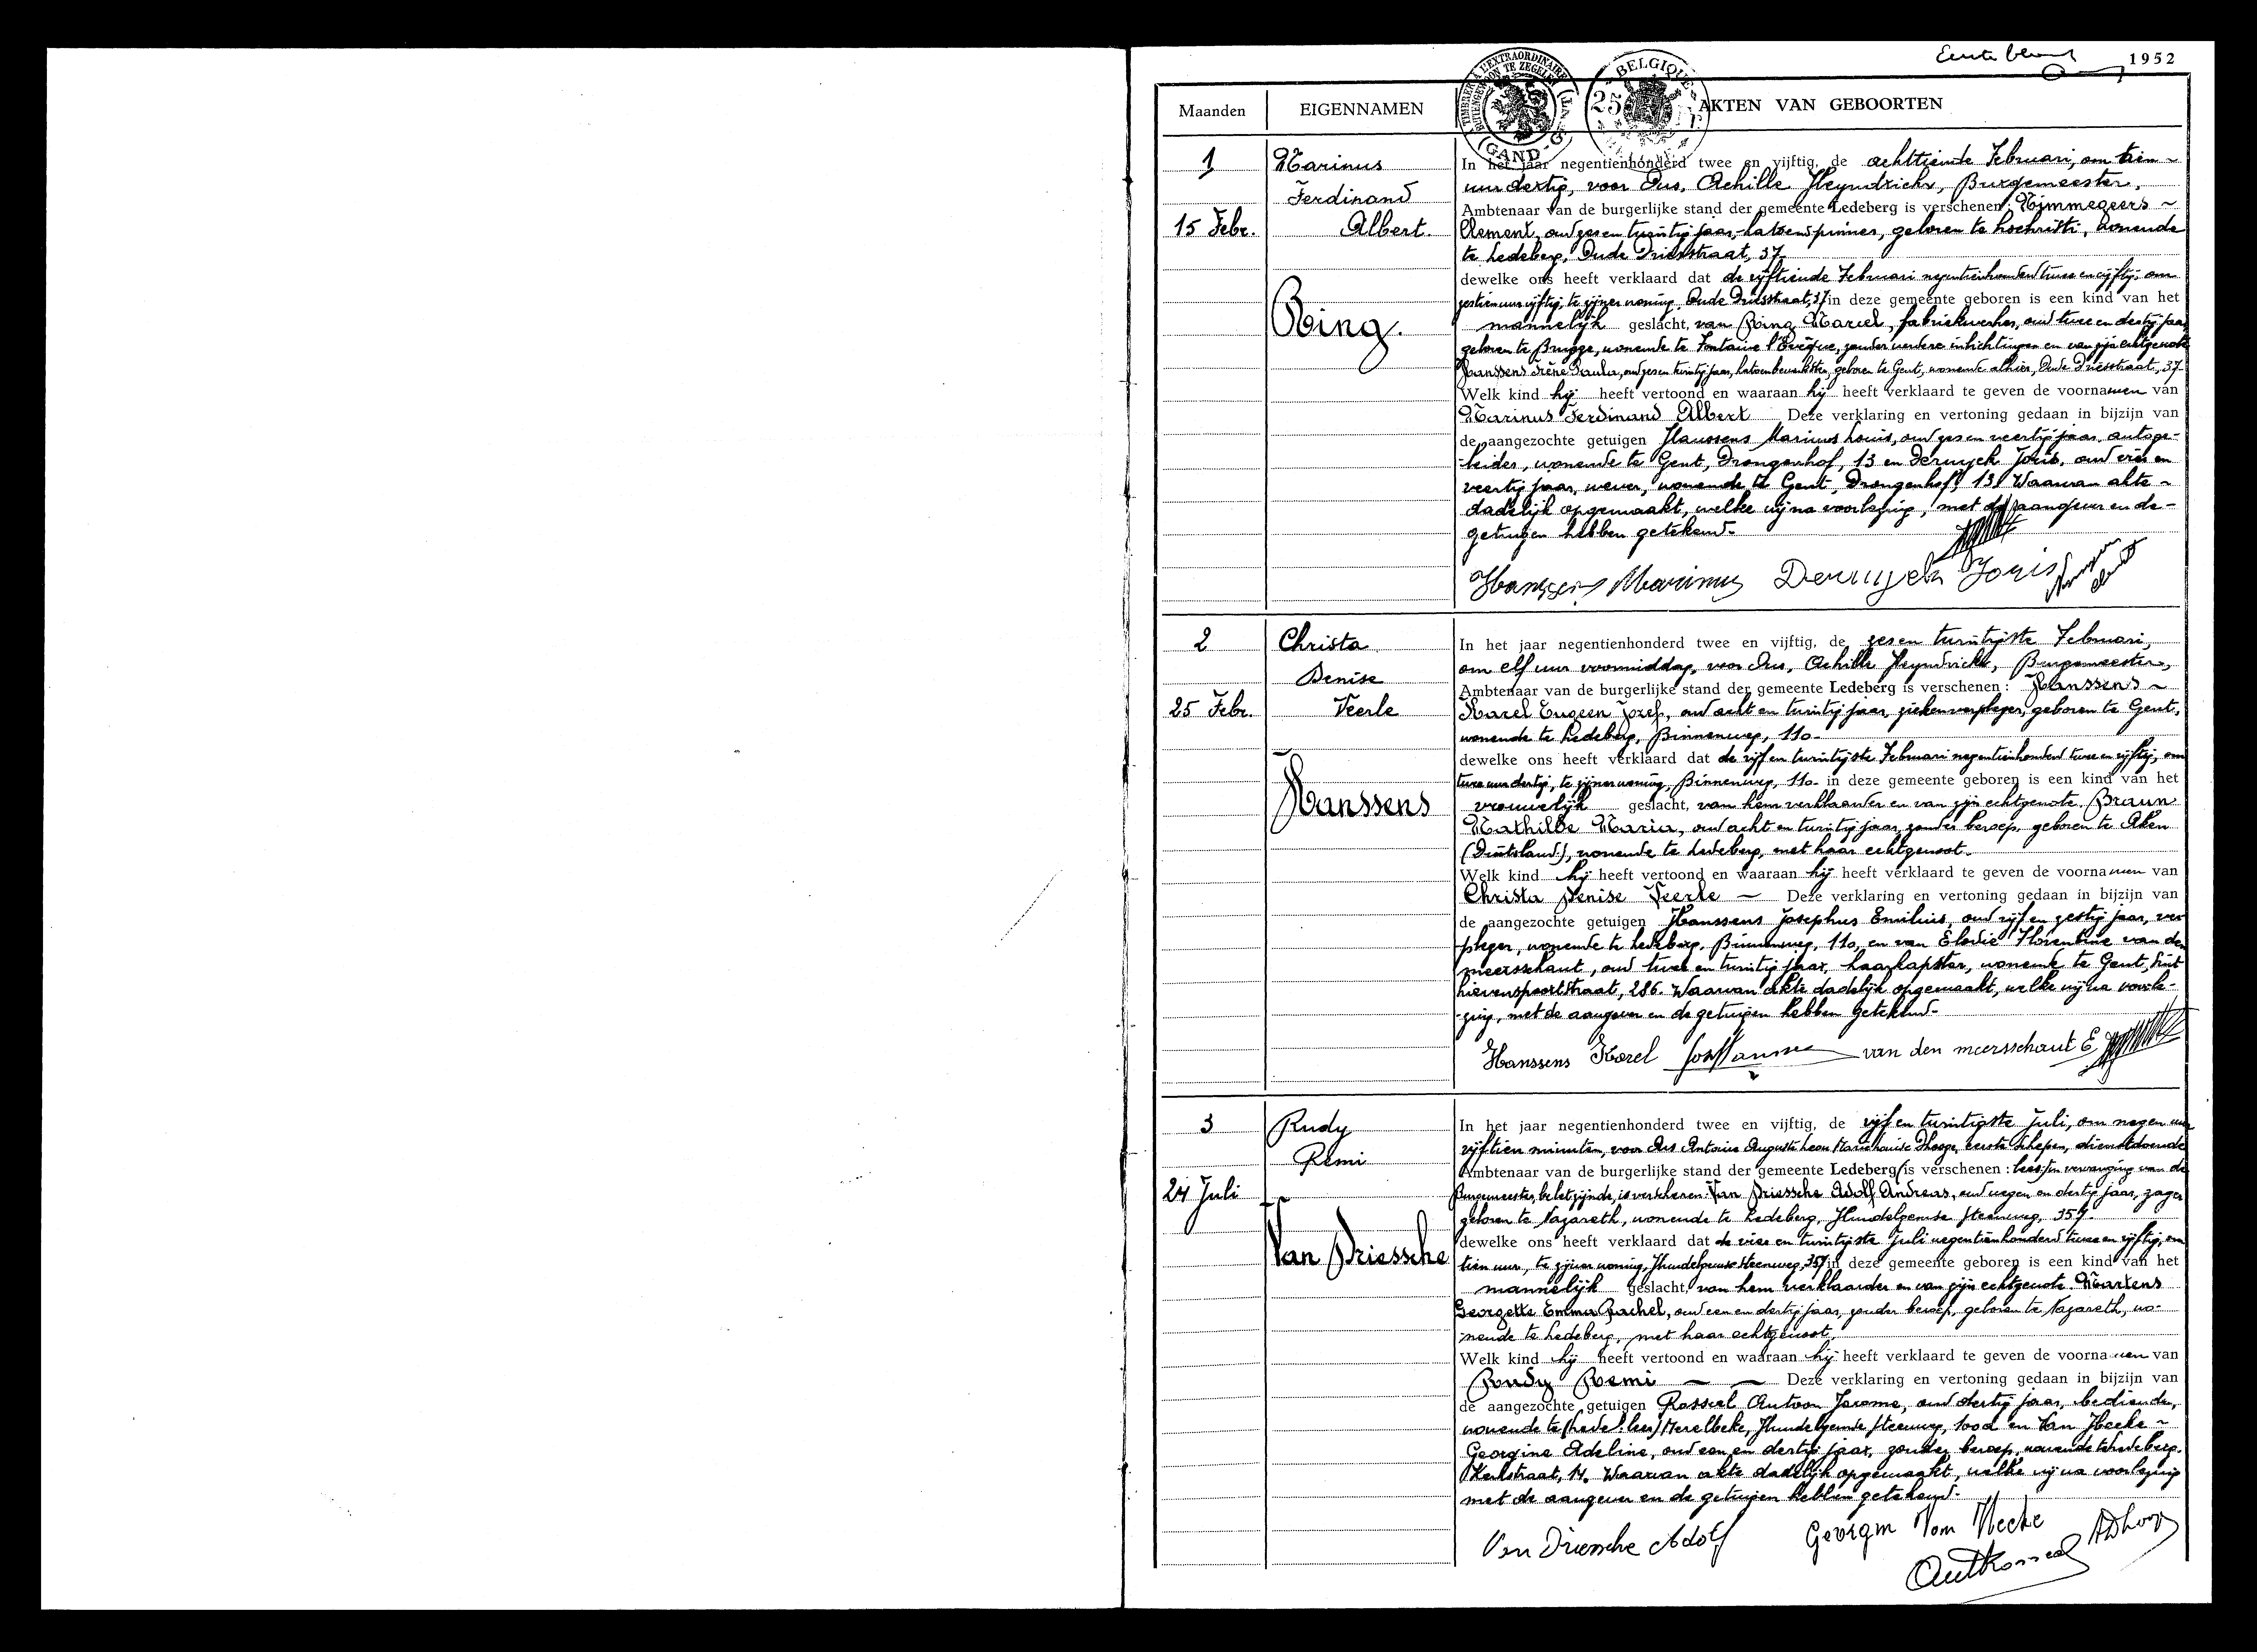 Eerste blad
1952
Maanden
EIGENNAMEN
AKTEN VAN GEBOORTEN
TIMBRE A L'EXTRAORDINAIRE
BUITENGEWOON TE ZEGELEN
GAND
BELGIQUE
25
1
15 Febr.
Marinus
Ferdinand
Albert.
Ring.
In het jaar negentienhonderd twee en vijftig, de achttiende Februari, om tien ~
uur dertig, voor Ons, Achille Heyndrickx, Burgemeester,
Ambtenaar van de burgerlijke stand der gemeente Ledeberg is verschenen: Nimmegeers ~
Clement, oud zes en twintig jaar, katoenspinner, geboren te Lochristi, wonende
te Ledeberg, Oude Driesstraat, 37
dewelke ons heeft verklaard dat de vijftiende Februari negentienhonderd twee en vijftig, om
zestien uur vijftig, te zijner woning, Oude Driesstraat, 37 in deze gemeente geboren is een kind van het
mannelijk geslacht, van Ring Marcel, fabriekwerker, oud twee en dertig jaar
geboren te Brugge, wonende te Fontaine l'Evêque, zonder verdere inlichtingen en van zijn echtgenote
Hanssens Irène Paula, oud zes en twintig jaar, katoenbewerkster, geboren te Gent, wonende alhier, Oude Driesstraat, 37-
Welk kind hij heeft vertoond en waaraan hij heeft verklaard te geven de voornamen van
Marinus Ferdinand Albert Deze verklaring en vertoning gedaan in bijzijn van
de aangezochte getuigen Hanssens Marinus Louis, oud zes en veertig jaar, autoge-
-leider, wonende te Gent, Drongenhof, 13 en Deruyck Joris, oud vier en
veertig jaar, wever, wonende te Gent, Drongenhof, 13. Waarvan akte ~
dadelijk opgemaakt, welke wij na voorlezing, met de aangever en de -
getuigen hebben getekend.
Hanssens Marinus Deruyck Joris
2
25 Febr.
Christa
Denise
Veerle
Hanssens
In het jaar negentienhonderd twee en vijftig, de zes en twintigste Februari,
om elf uur voormiddag, voor Ons, Achille Heyndrickx, Burgemeester,
Ambtenaar van de burgerlijke stand der gemeente Ledeberg is verschenen: Hanssens ~
Karel Eugeen Jozef, oud acht en twintig jaar, ziekenverpleger, geboren te Gent,
wonende te Ledeberg, Binnenweg, 110-
dewelke ons heeft verklaard dat de vijf en twintigste Februari negentienhonderd twee en vijftig, om
twee uur dertig, te zijner woning, Binnenweg, 110- in deze gemeente geboren is een kind van het
vrouwelijk geslacht, van hem verklaarder en van zijn echtgenote Braun
Mathilde Maria, oud acht en twintig jaar, zonder beroep, geboren te Aken
(Duitsland), wonende te Ledeberg, met haar echtgenoot.
Welk kind hij heeft vertoond en waaraan hij heeft verklaard te geven de voornamen van
Christa Denise Veerle ~ Deze verklaring en vertoning gedaan in bijzijn van
de aangezochte getuigen Hanssens Josephus Emilius, oud vijf en zestig jaar, ver
pleger, wonende te Ledeberg, Binnenweg, 110, en van Elodie Florentine van den
meersschaut, oud twee en twintig jaar, haarkapster, wonende te Gent, Sint
Lievenspoortstraat, 286. Waarvan akte dadelijk opgemaakt, welke wij na voorle-
-zing, met de aangever en de getuigen hebben getekend.
Hanssens Karel Jos Hanssens van den meersschaut E
3
24 Juli
Rudy
Remi
Van Driessche
In het jaar negentienhonderd twee en vijftig, de vijf en twintigste Juli, om negen uur
vijftien minuten, voor Ons Antoine Auguste Leon Marie Louise Dhooge, eerste schepen, dienstdoende
Ambtenaar van de burgerlijke stand der gemeente Ledeberg is verschenen: lees: ter vervanging van de
Burgemeester, belet zijnde, is verschenen: Van Driessche Adolf Andreas, oud negen en dertig jaar, zager
geboren te Nazareth, wonende te Ledeberg, Hundelgemse steenweg, 357.
dewelke ons heeft verklaard dat de vier en twintigste Juli negentienhonderd twee en vijftig, om
tien uur, te zijner woning, Hundelgemse steenweg, 357 in deze gemeente geboren is een kind van het
mannelijk geslacht, van hem verklaarder en van zijn echtgenote Martens
Georgette Emma Rachel, oud een en dertig jaar, zonder beroep, geboren te Nazareth, wo-
-nende te Ledeberg, met haar echtgenoot.
Welk kind hij heeft vertoond en waaraan hij heeft verklaard te geven de voornamen van
Rudy Remi ~ ~ Deze verklaring en vertoning gedaan in bijzijn van
de aangezochte getuigen Rosseel Antoon Jerome, oud dertig jaar, bediende,
wonende te (Lede: lees) Merelbeke, Hundelgemse steenweg, 100d en Van Hecke ~
Georgine Adeline, oud een en dertig jaar, zonder beroep, wonende te Ledeberg.
Kerkstraat, 14. Waarvan akte dadelijk opgemaakt, welke wij na voorlezing
met de aangever en de getuigen hebben getekend.
Van Driessche Adolf Georgine Van Hecke ADhooge
Ant Rosseel